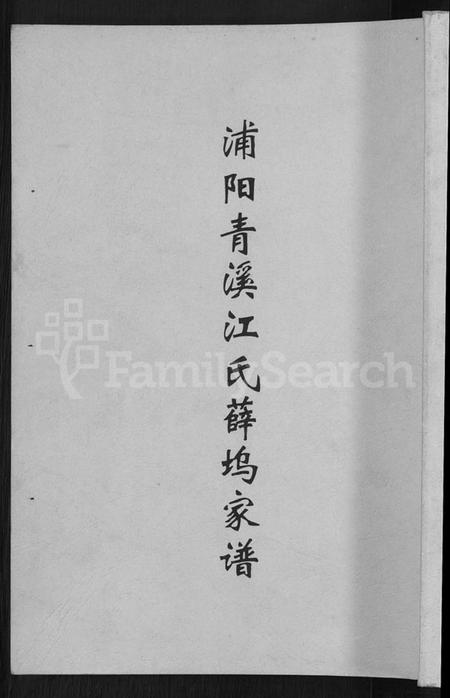 浦阳青溪江氏薛坞家谱
FamilySearch